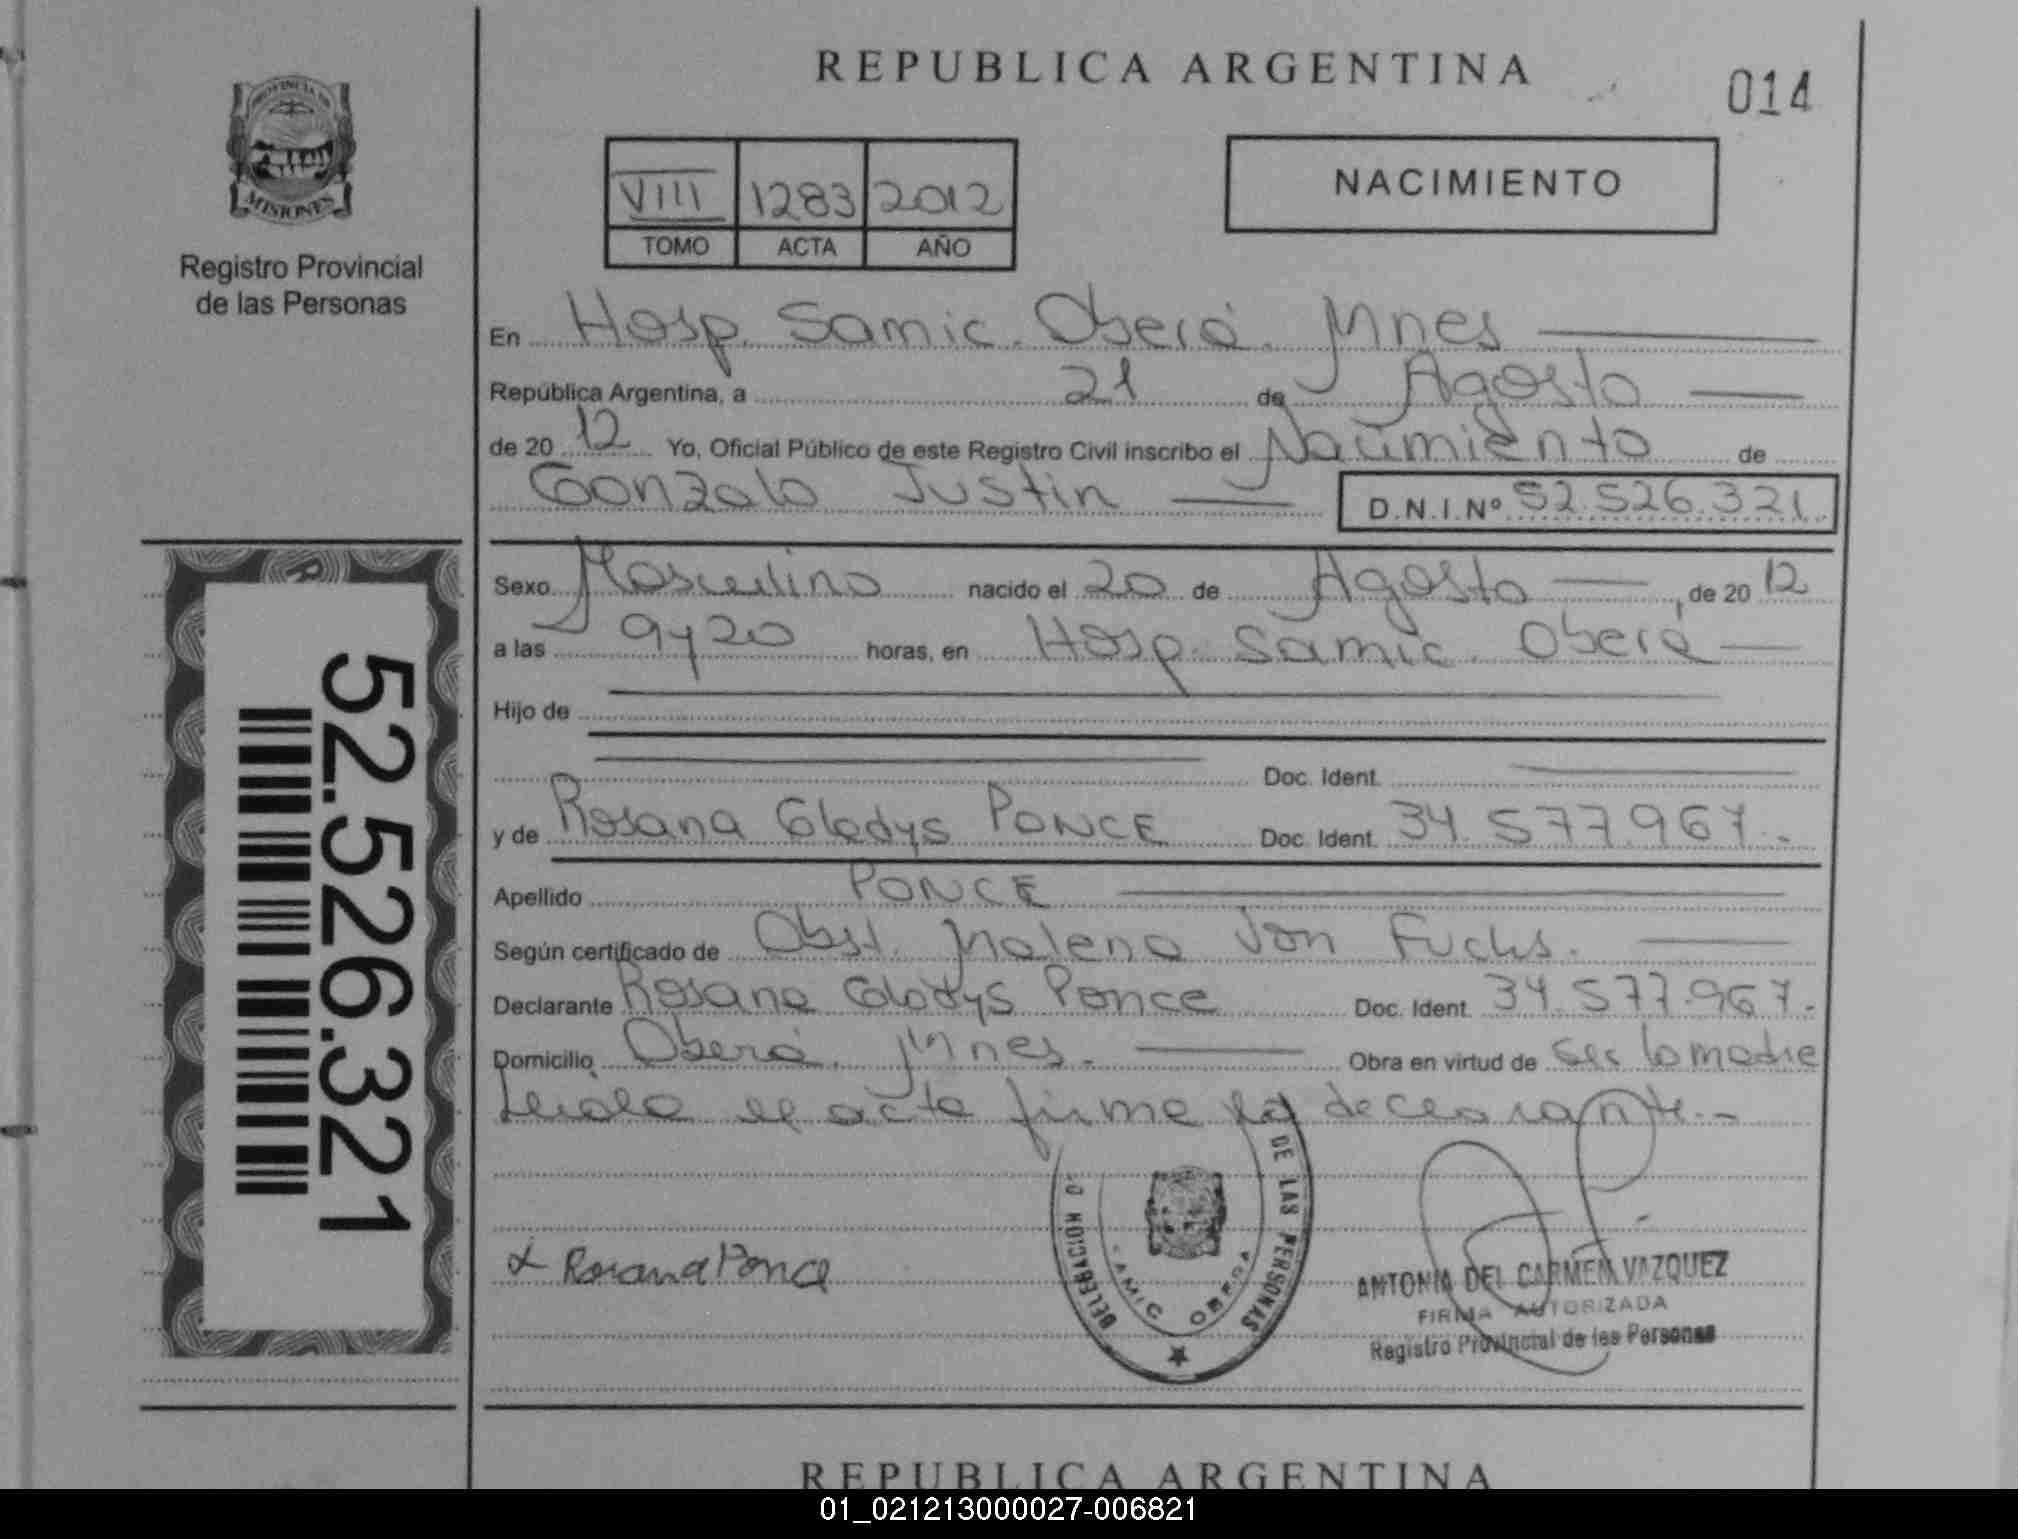 REPUBLICA ARGENTINA
014
PROVINCIA DE
MISIONES
Registro Provincial
de las Personas
VIII 1283 2012
TOMO ACTA AÑO
NACIMIENTO
En Hosp. Samic. Oberá. Mnes
República Argentina, a 21 de Agosto
de 20 12 Yo, Oficial Público de este Registro Civil inscribo el Nacimiento de
Gonzalo Justin D.N.I.Nº 52.526.321
Sexo Masculino nacido el 20 de Agosto, de 20 12
a las 9y20 horas, en Hosp. Samic. Oberá
Hijo de
Doc. Ident.
y de Rosana Gladys PONCE Doc. Ident. 34.577.967.-
Apellido PONCE
Según certificado de Obst. Malena Von Fuchs.
Declarante Rosana Gladys Ponce Doc. Ident. 34.577.967.-
Domicilio Oberá. Mnes. Obra en virtud de ser la madre
Leída el acta firma la declarante.-
52.526.321
Rosana Ponce
DELEGACION DE LAS PERSONAS
SAMIC OBERA
ANTONIA DEL CARMEN VAZQUEZ
FIRMA AUTORIZADA
Registro Provincial de las Personas
REPUBLICA ARGENTINA
01_021213000027-006821